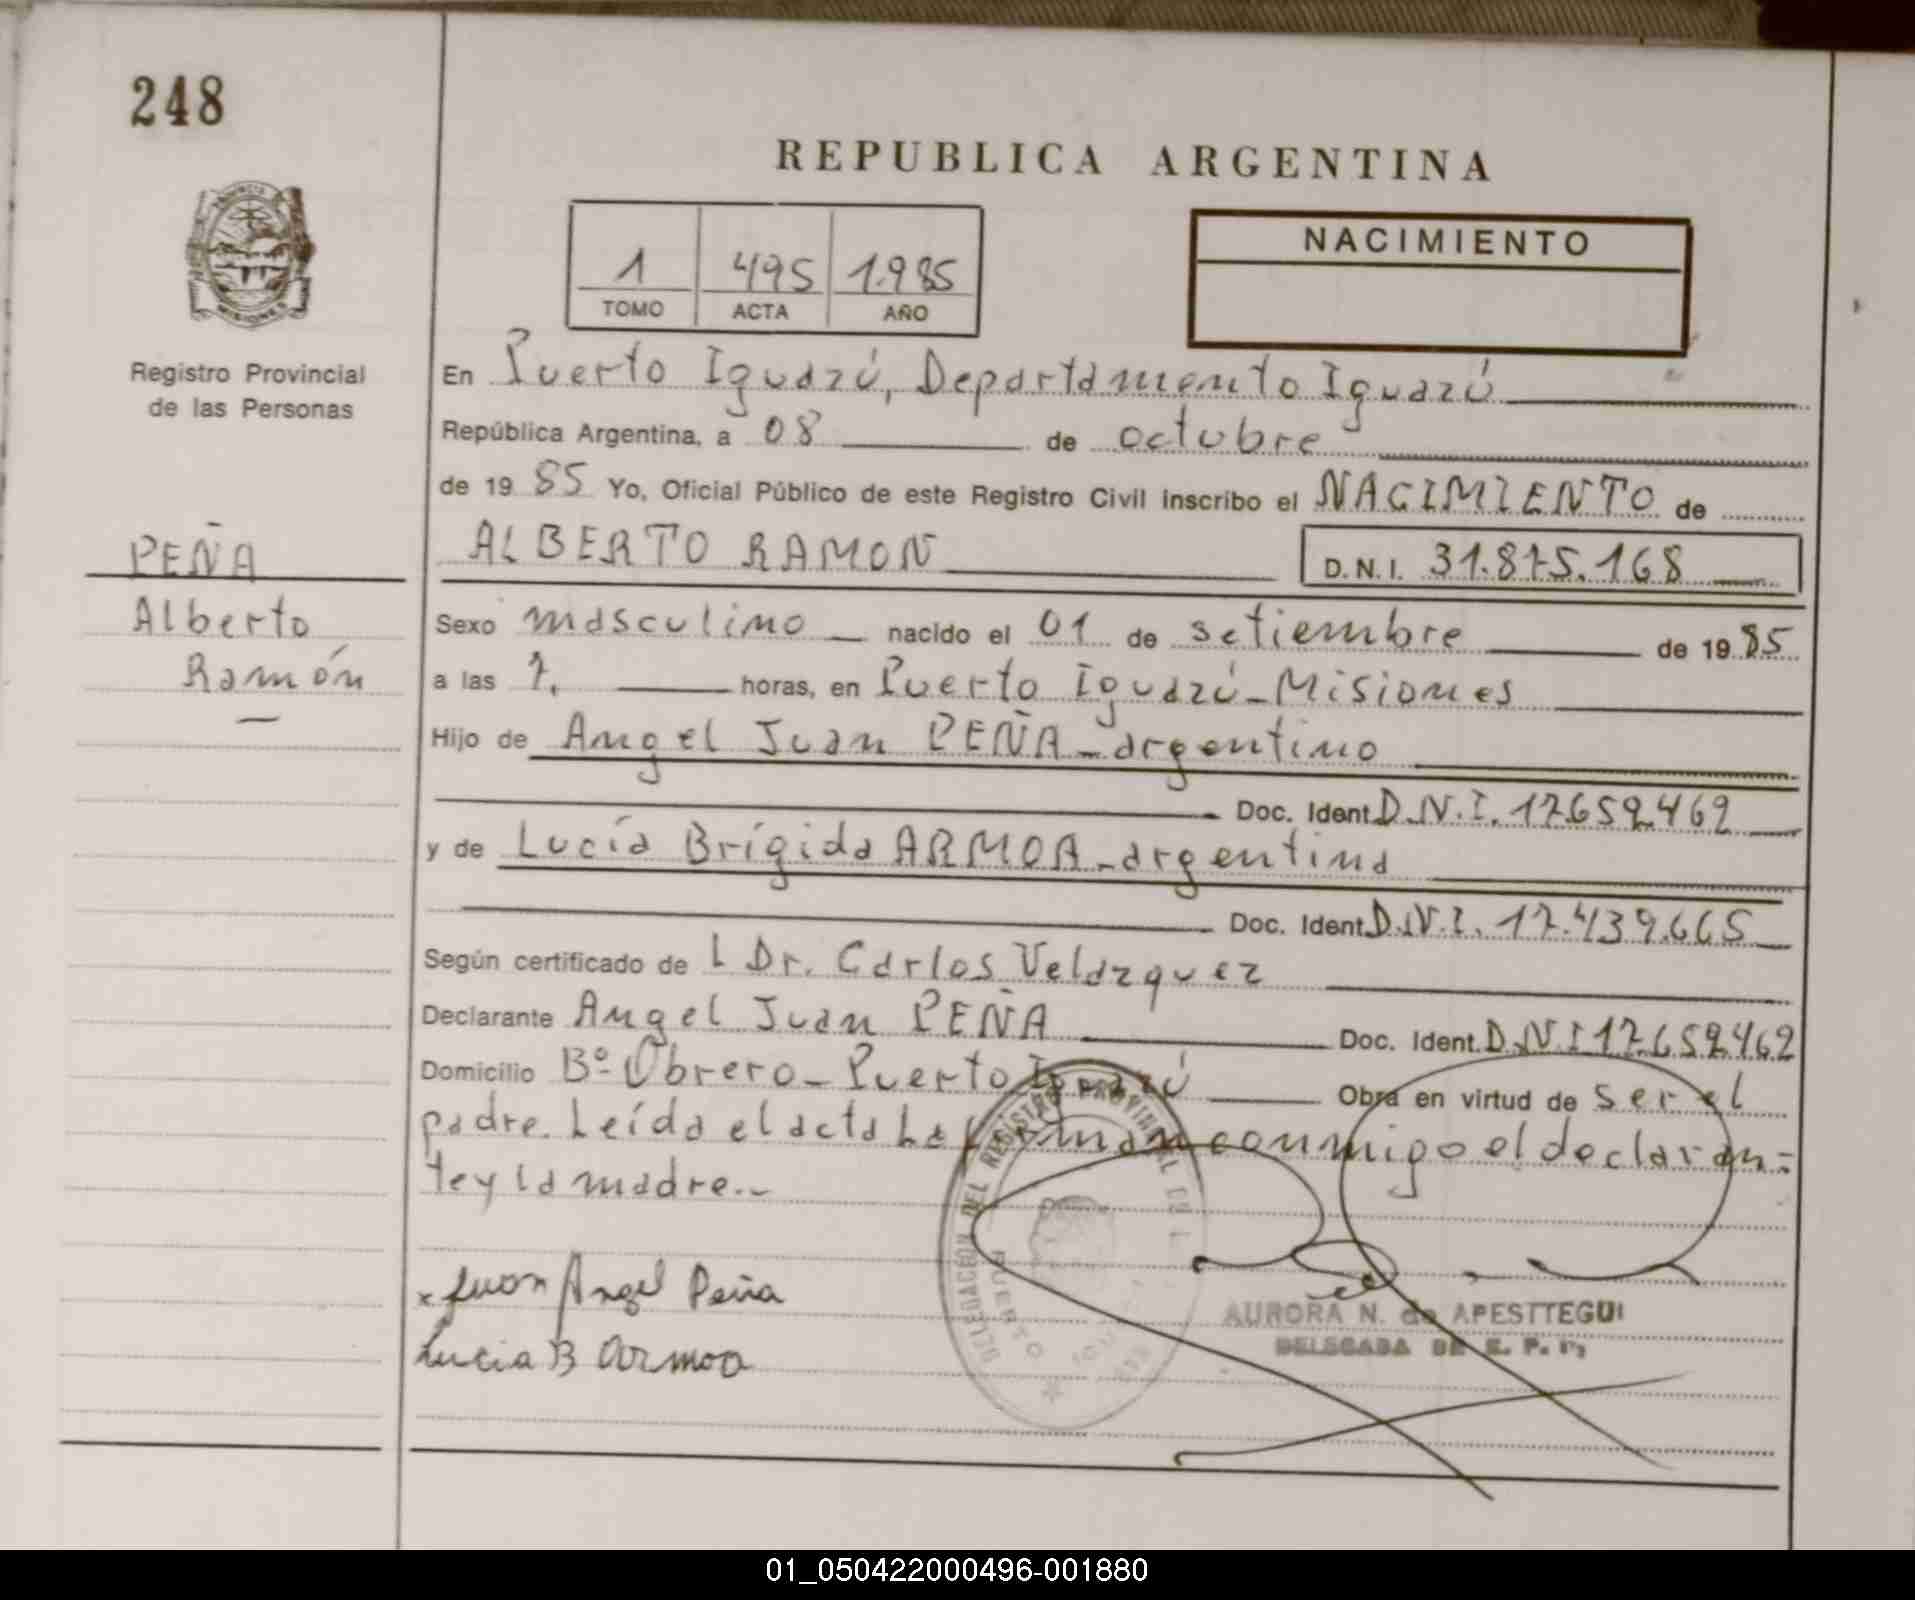 248
REPUBLICA ARGENTINA
NACIMIENTO
1 495 1.985
TOMO ACTA AÑO
Registro Provincial
de las Personas
En Puerto Iguazú, Departamento Iguazú
República Argentina, a 08 de octubre
de 19 85 Yo, Oficial Público de este Registro Civil inscribo el NACIMIENTO de
PEÑA
Alberto
Ramón
ALBERTO RAMON D.N.I. 31.875.168
Sexo masculino nacido el 01 de setiembre de 19 85
a las 7. horas, en Puerto Iguazú - Misiones
Hijo de Angel Juan PEÑA - argentino
Doc. Ident. D.N.I. 17.659.469
y de Lucía Brígida ARMOA - argentina
Doc. Ident. D.N.I. 17.439.665
Según certificado de L Dr. Carlos Velazquez
Declarante Angel Juan PEÑA Doc. Ident. D.N.I 17.659.469
Domicilio Bº Obrero - Puerto Iguazú Obra en virtud de ser el
padre. Leída el acta La firman conmigo el declaran=
te y la madre.-
x Juan Angel Peña
Lucia B Armoa
DELEGACION DEL REGISTRO PROVINCIAL DE
PUERTO
AURORA N. de APESTTEGUI
DELEGADA DE
01_050422000496-001880